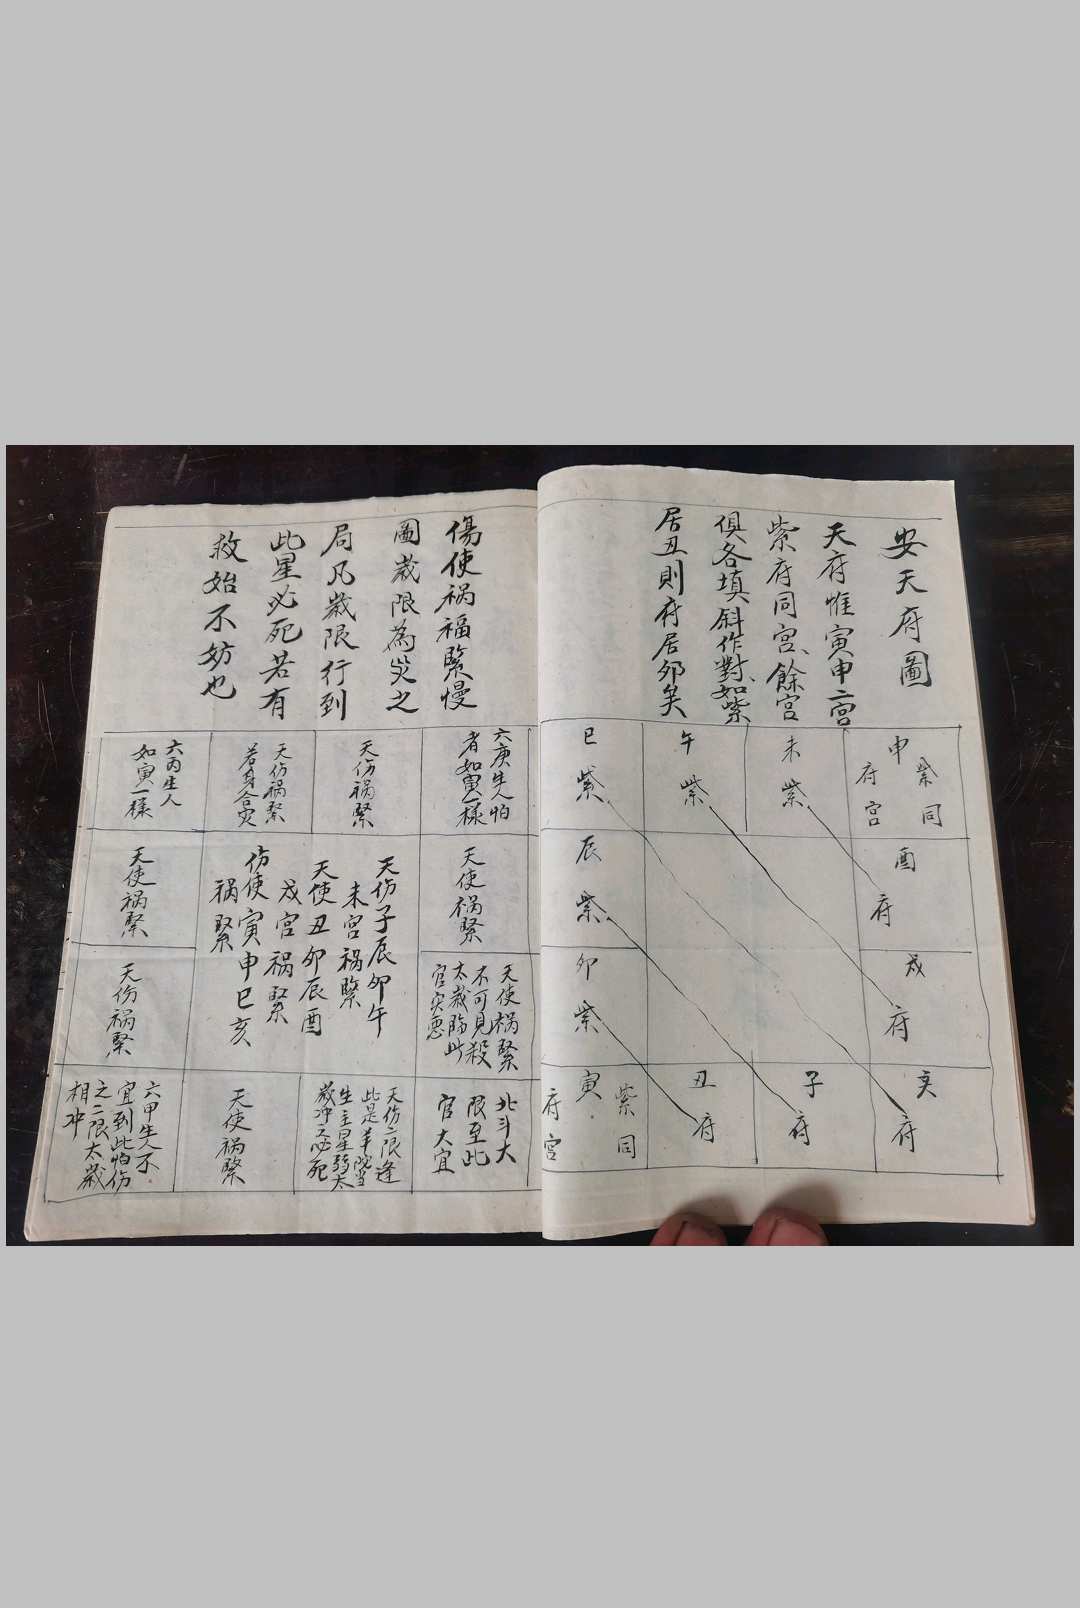 安天府圖
天府惟寅申二宫
紫府同宫、餘宫
俱各填斜作對、如紫
居丑則府居卯矣
申
紫同
府宫
未
紫
午
紫
巳
紫
酉
府
辰
紫
戌
府
卯
紫
亥
府
子
府
丑
府
寅
紫同
府宫
傷使祸福緊慢
圖歲限為災之
局凡歲限行到
此星必死若有
救始不妨也
六庚生人怕
者如寅一樣
天伤祸緊
天伤祸緊
若身合灾
六丙生人
如寅一樣
天使祸緊
天伤子辰卯午
未宫祸緊
天使丑卯辰酉
戌宫祸緊
伤使寅申巳亥
祸緊
天使祸緊
天使祸緊
不可見殺
太歲臨此
官灾惡
天伤祸緊
北斗大
限至此
官大宜
天伤二限逢
此是羊陀当
生主星弱太
歲冲又必死
天使祸緊
六甲生人不
宜到此怕伤
之二限太歲
相冲